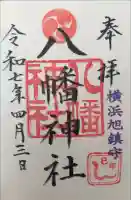 奉拝
横浜旭鎮守
巳年
八幡神社
八幡
神社
令和七年四月三日